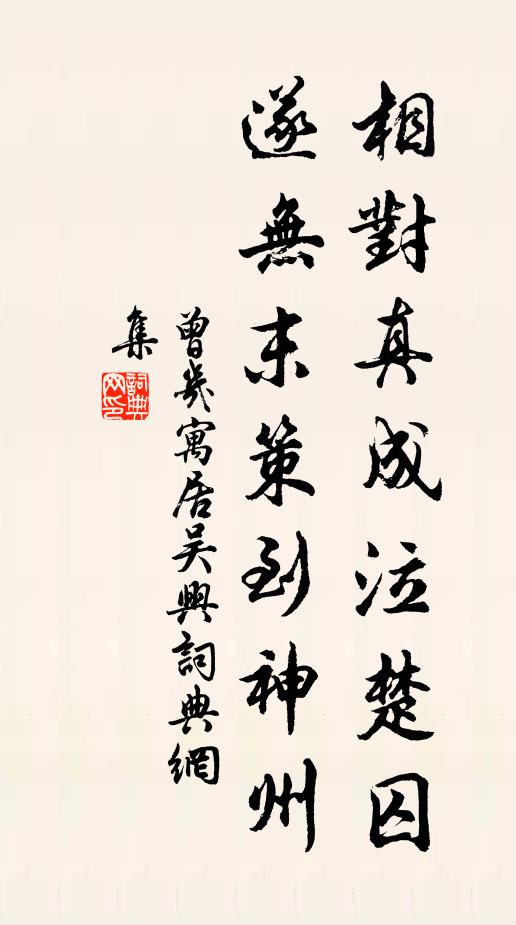 相對真成泣楚囚
遂無末策到神州
曾幾寓居吳興詞典網
集
詞典
网印